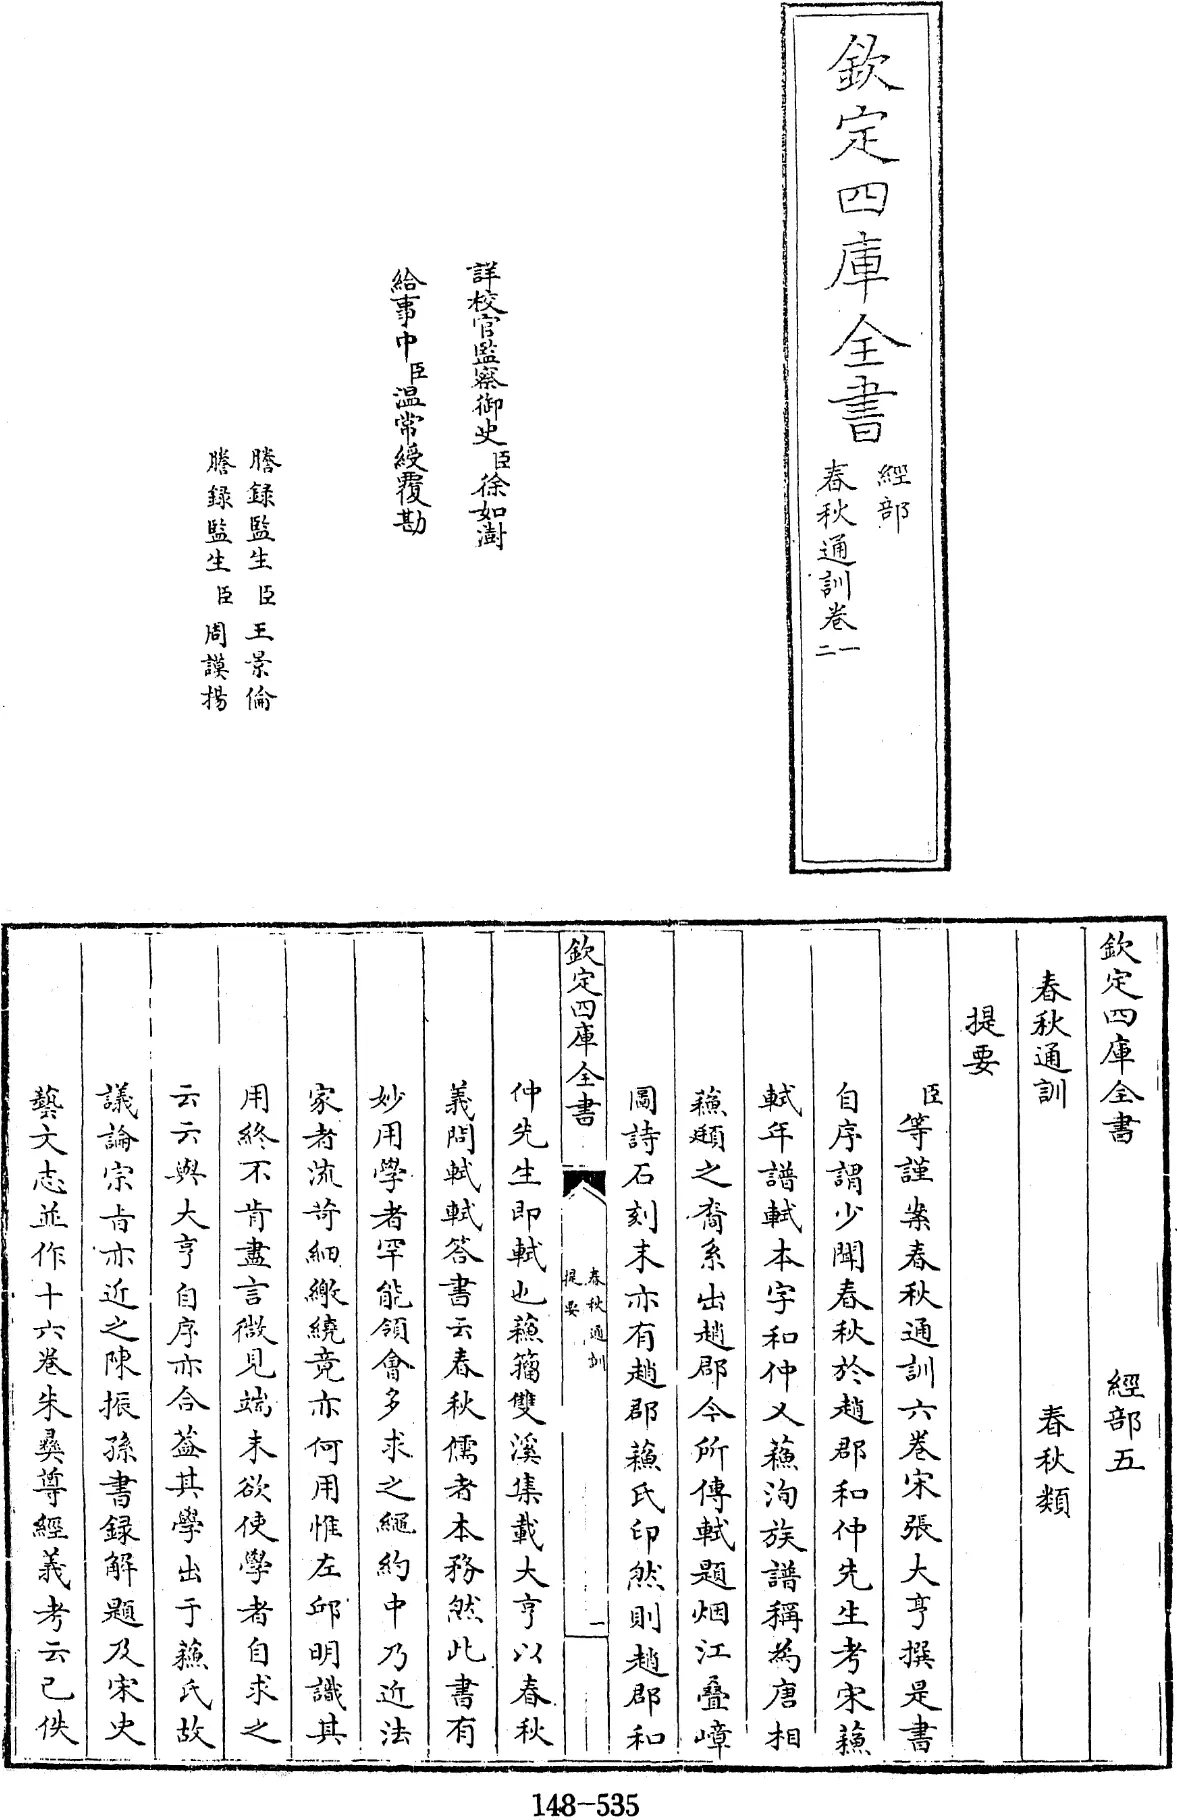 欽定四庫全書
經部
春秋通訓卷一
二
詳校官監察御史臣徐如澍
給事中臣溫常綬覆勘
謄録監生臣王景倫
謄録監生臣周謨揚
欽定四庫全書 經部五
春秋通訓 春秋類
提要
臣等謹案春秋通訓六卷宋張大亨撰是書
自序謂少聞春秋於趙郡和仲先生考宋蘓
軾年譜軾本字和仲又蘓洵族譜稱為唐相
蘓頲之裔系出趙郡今所傳軾題烟江疊嶂
圖詩石刻末亦有趙郡蘓氏印然則趙郡和
欽定四庫全書
春秋通訓
提要
一
仲先生即軾也蘓籀雙溪集載大亨以春秋
義問軾軾答書云春秋儒者本務然此書有
妙用學者罕能領會多求之繩約中乃近法
家者流苛細繳繞竟亦何用惟左邱明識其
用終不肯盡言微見端末欲使學者自求之
云云與大亨自序亦合葢其學出于蘓氏故
議論宗旨亦近之陳振孫書録解題及宋史
藝文志並作十六卷朱彞尊經義考云已佚
148-535